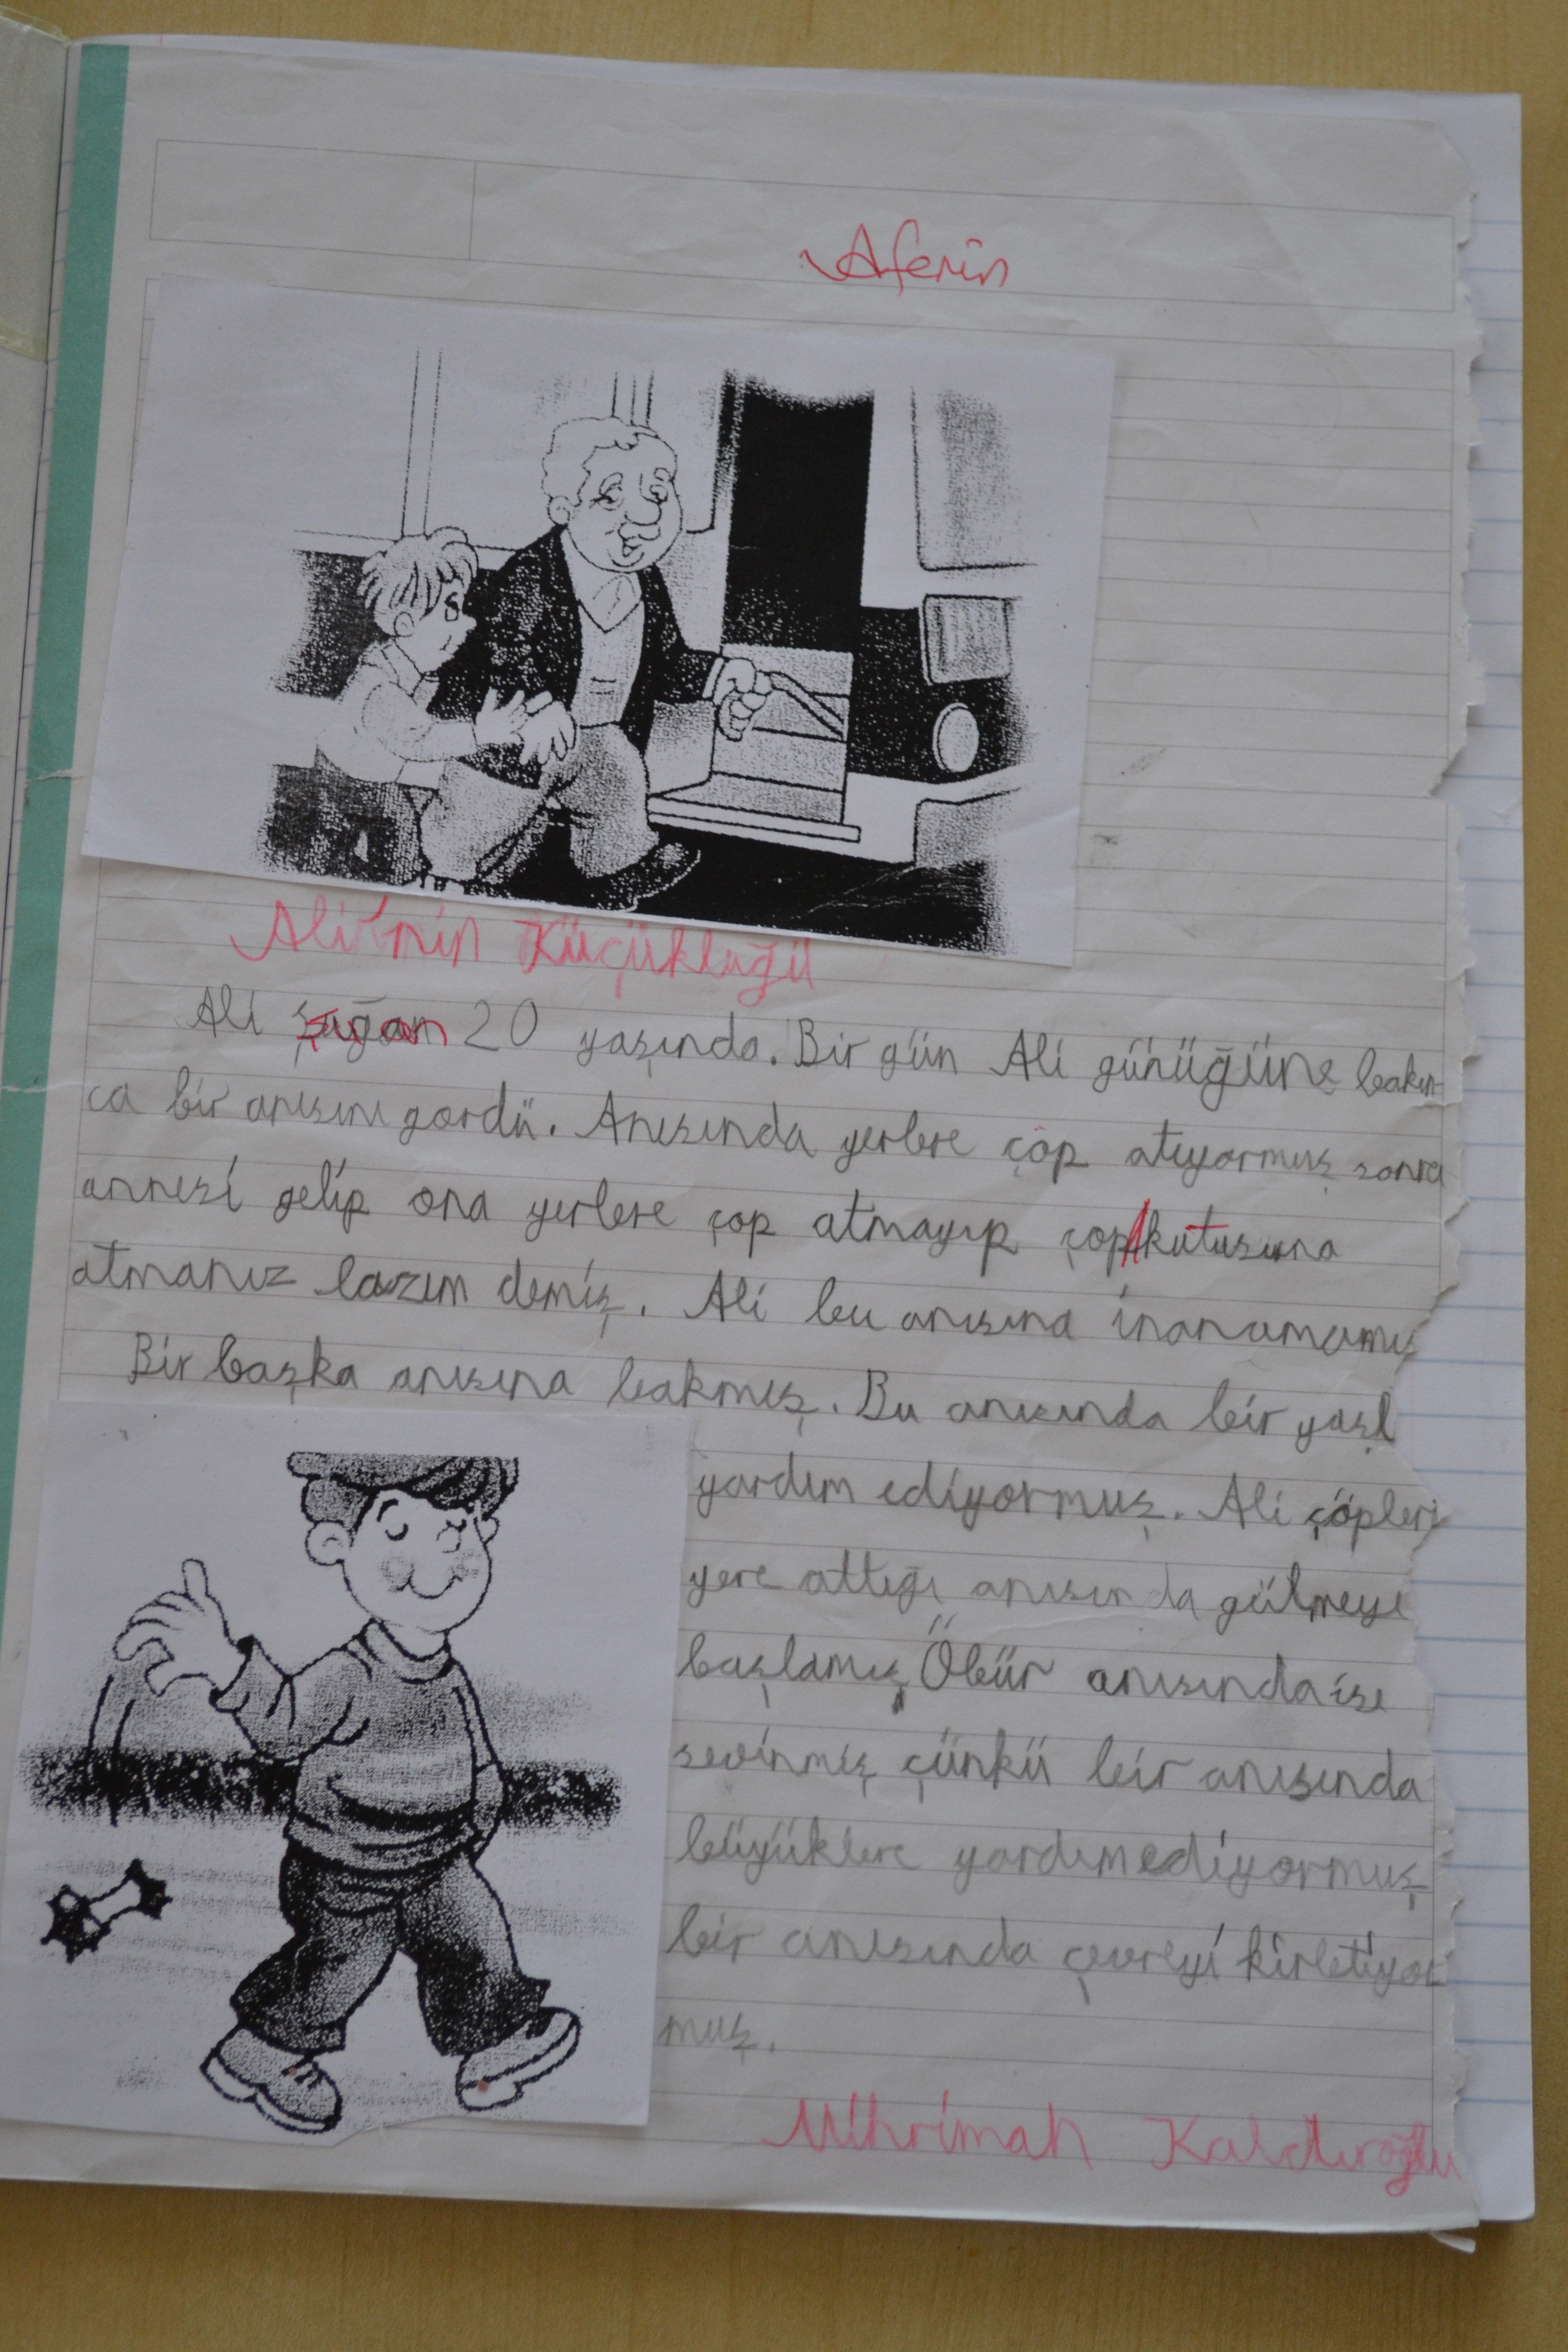 Aferin
Ali'nin Küçüklüğü
Ali 20 yaşında. Bir gün Ali günüğüne bakın-
ca bir anısını gördü. Anısında yerlere çöp atıyormuş sonra
annesi gelip ona yerlere çop atmayıp çop kutusuna
atmanız lazım demiş. Ali bu anısına inanamamış
Bir başka anısına bakmış. Bu anısında bir yaşl
yardım ediyormuş. Ali çöpleri
yere attığı anısında gülmeye
başlamış, Öbür anısında ise
sevinmiş çünkü bir anısında
büyüklere yardım ediyormuş
bir anısında çevreyi kirletiyor
muş.
Mihrimah Kaldıroğlu